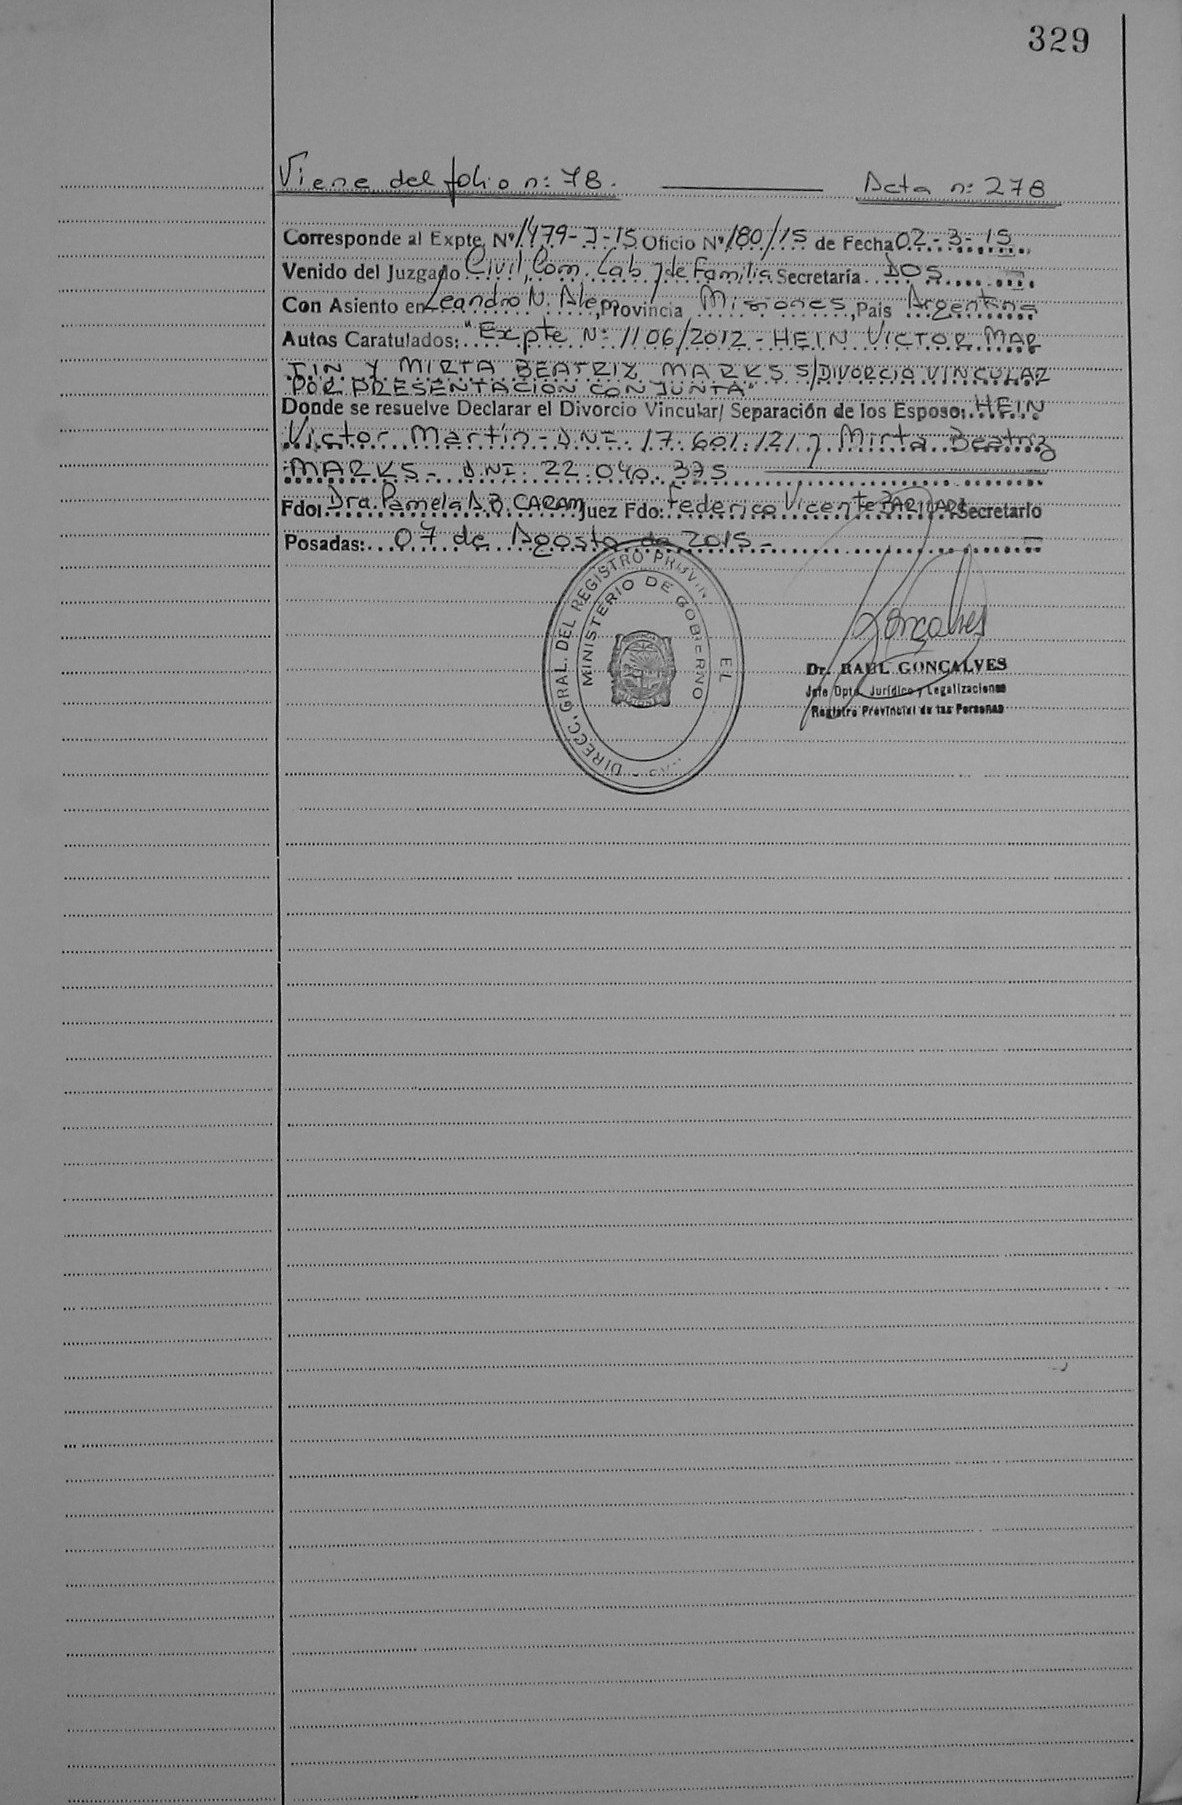 329
Viene del folio n: 78. Acta n: 278
Corresponde al Expte. Nº 1479-J-15 Oficio Nº 180/15 de Fecha 02-3-15
Venido del Juzgado Civil, Com. Lab. y de Familia Secretaría DOS
Con Asiento en Leandro N. Alem, Provincia Misiones, País Argentina
Autos Caratulados: "Expte. Nº 1106/2012 - HEIN VICTOR MAR
TIN Y MIRTA BEATRIZ MARKS S/DIVORCIO VINCULAR
POR PRESENTACIÓN CONJUNTA"
Donde se resuelve Declarar el Divorcio Vincular/ Separación de los Esposo: HEIN
Victor Martín - D.N.I. 17.601.121 y Mirta Beatriz
MARKS - D.N.I. 22.040.375
Fdo: Dra. Pamela A.B. CARAM Juez Fdo: Federico Vicente Secretario
Posadas: 07 de Agosto de 2015 -
DIRECC. GRAL. DEL REGISTRO PROVIN
MINISTERIO DE GOBIERNO
Goncalves
Dr. RAUL GONCALVES
Jefe Dpto. Jurídico y Legalizaciones
Registro Provincial de las Personas